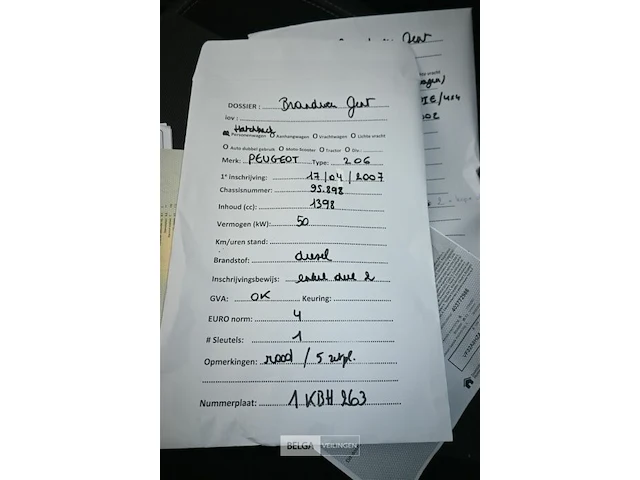 DOSSIER : Brandweer Gent
iov :
Hatchback
Personenwagen O Aanhangwagen O Vrachtwagen O Lichte vracht
O Auto dubbel gebruik O Moto-Scooter O Tractor O Div.:
Merk: PEUGEOT Type: 206
1e inschrijving: 17/04/2007
Chassisnummer: 95.898
Inhoud (cc): 1398
Vermogen (kW): 50
Km/uren stand:
Brandstof: diesel
Inschrijvingsbewijs: enkel deel 2
GVA: OK Keuring:
EURO norm: 4
# Sleutels: 1
Opmerkingen: rood / 5 zitpl.
Nummerplaat: 1 KBH 263
BELGA VEILINGEN
Gent